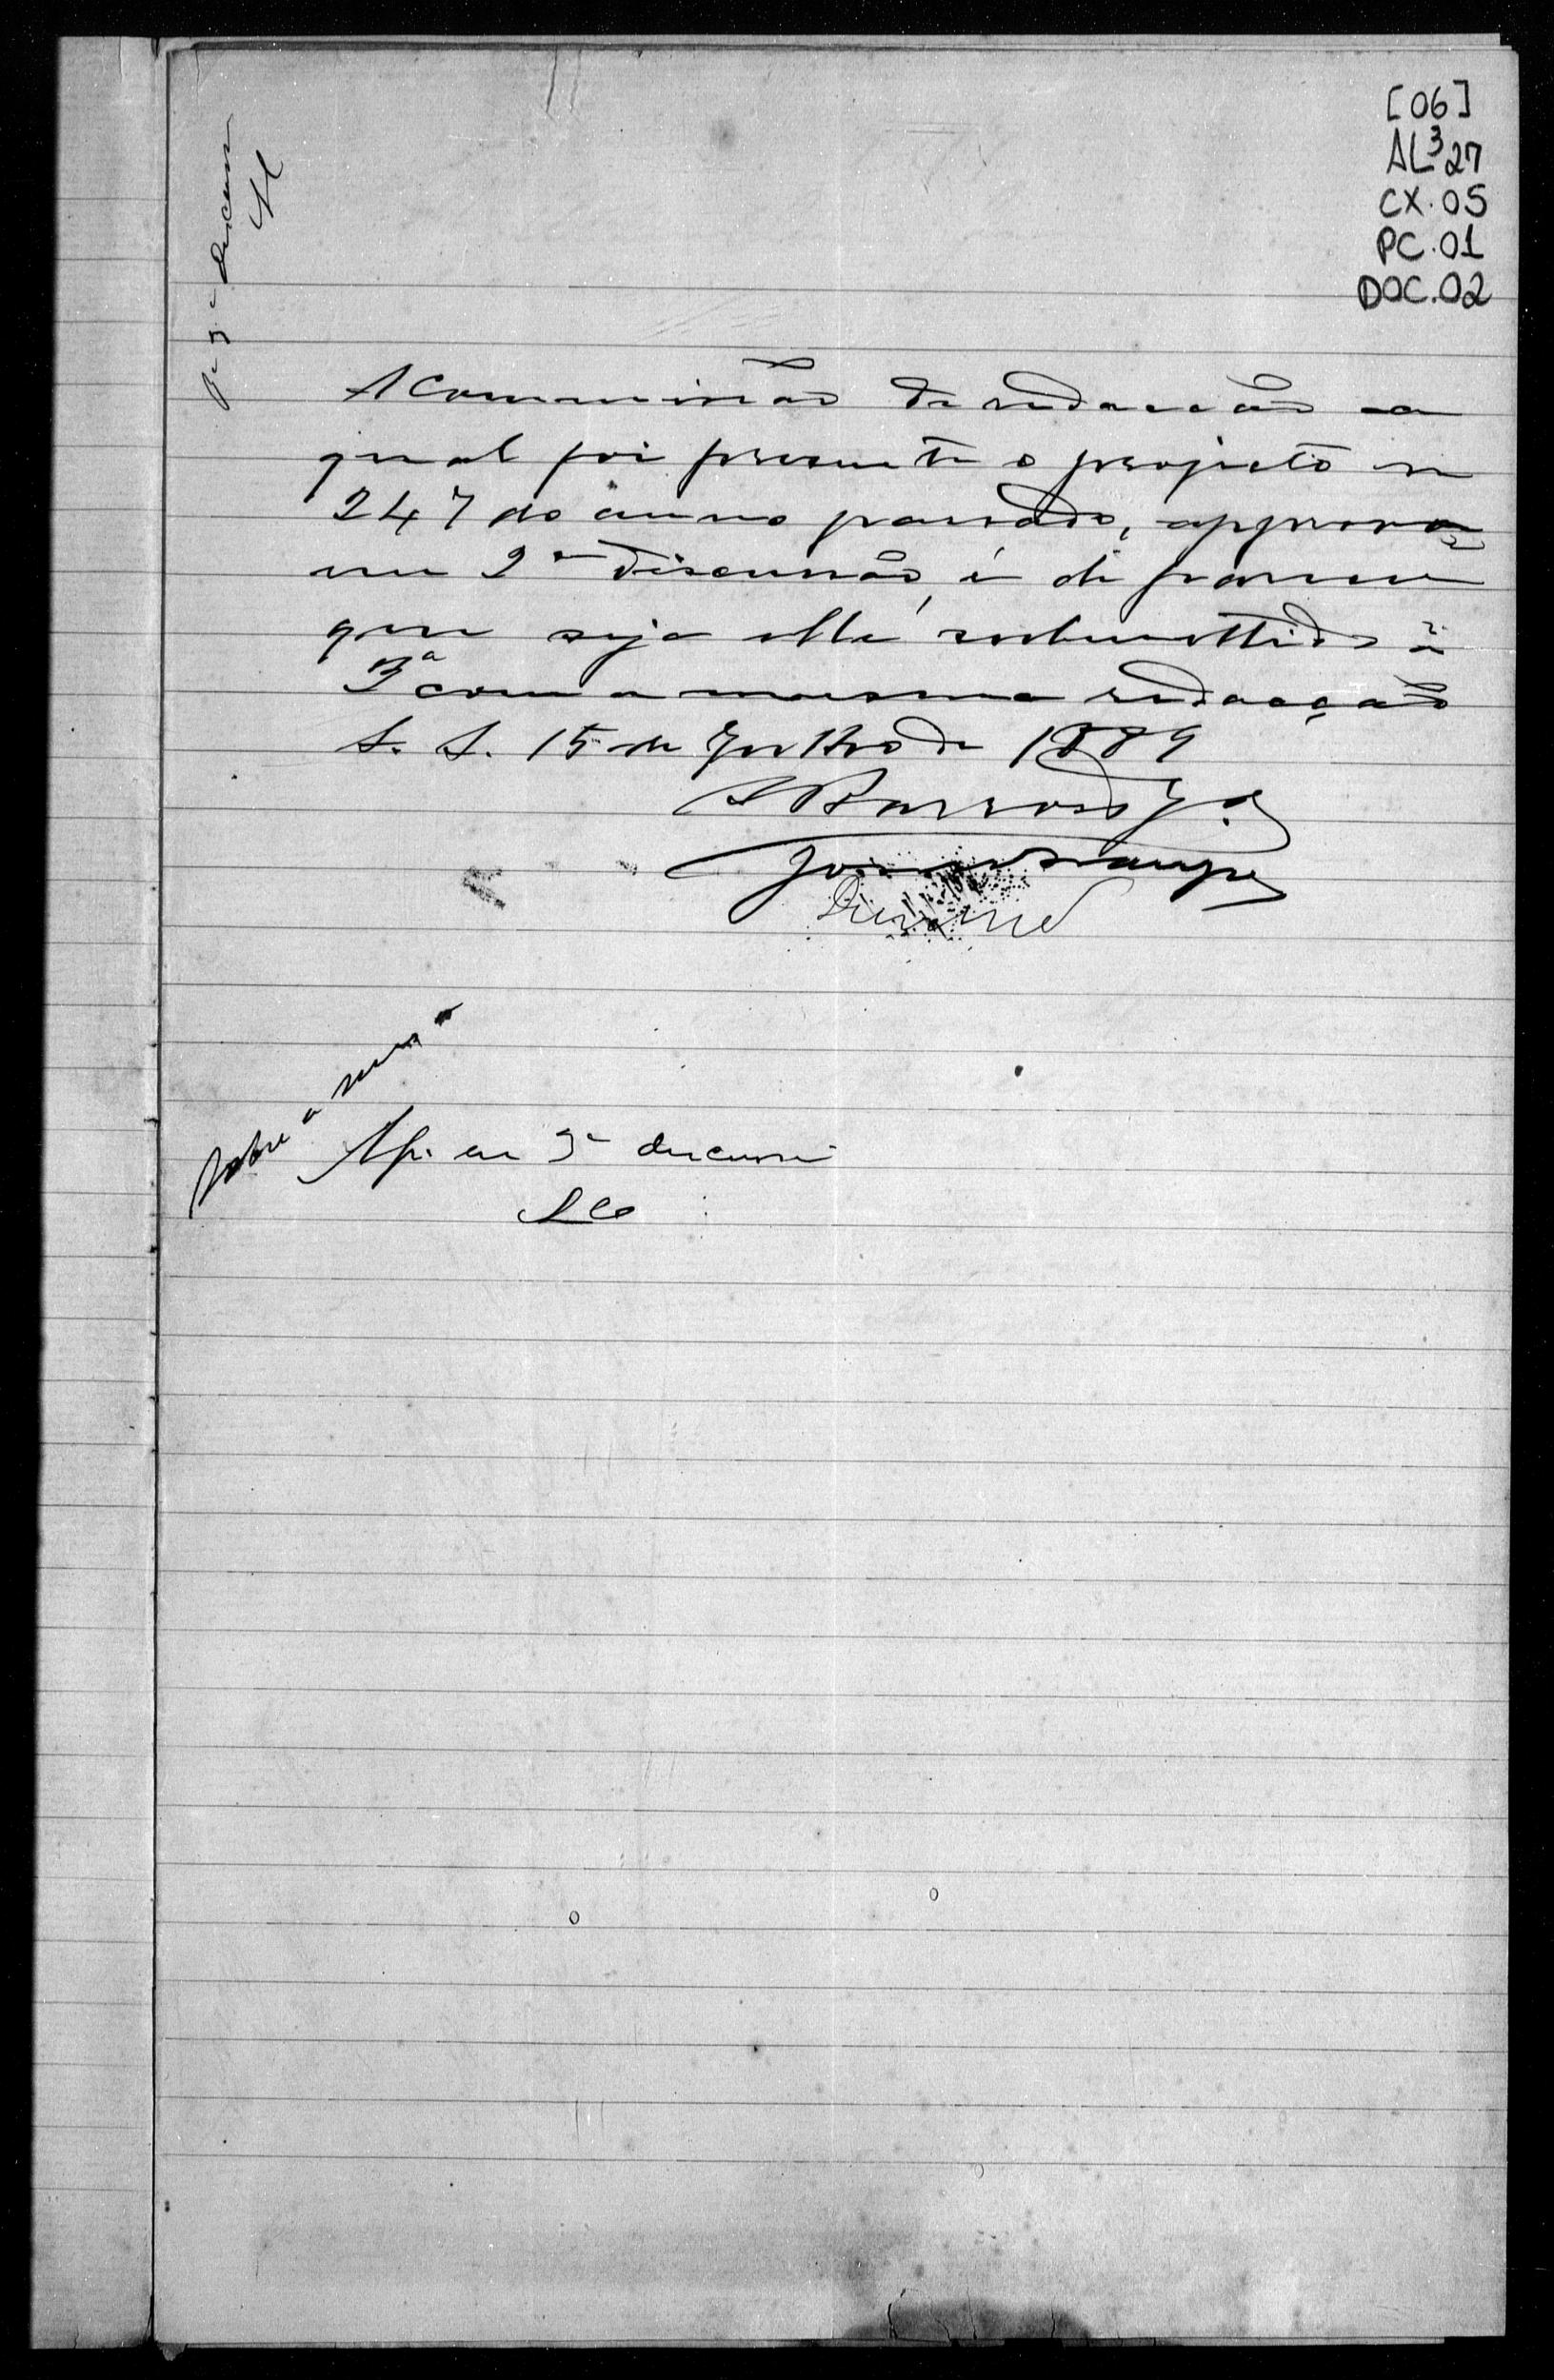 [06]
AL³27
CX.05
PC.01
DOC.02
A Commissão de redacção a
qual foi presente o projecto n
247 do anno passado, approvado
em 2ª discussão, é de parecer
que seja elle submettido á
3ª com a mesma redacção
S. S. 15 de Julho de 1889
A Barros Jr.
Ap. em 3ª discussão
Sobre a mesa